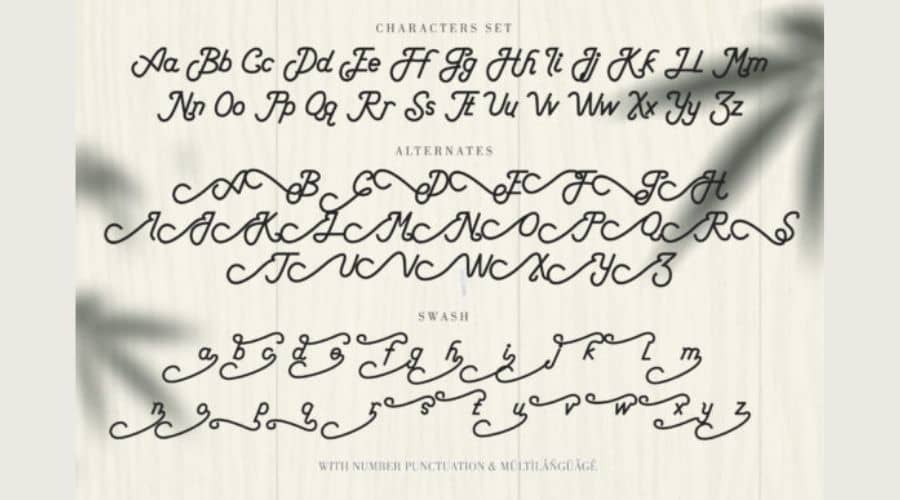 CHARACTERS SET
Aa Bb Cc Dd Ee Ff Gg Hh Ii Jj Kk Ll Mm
Nn Oo Pp Qq Rr Ss Tt Uu Vv Ww Xx Yy Zz
ALTERNATES
A B C D E F G H
I J K L M N O P Q R S
T U V W X Y Z
SWASH
a b c d e f g h i j k l m
n o p q r s t u v w x y z
WITH NUMBER PUNCTUATION & MÜLTÌLÂÑGÜÃGÉ